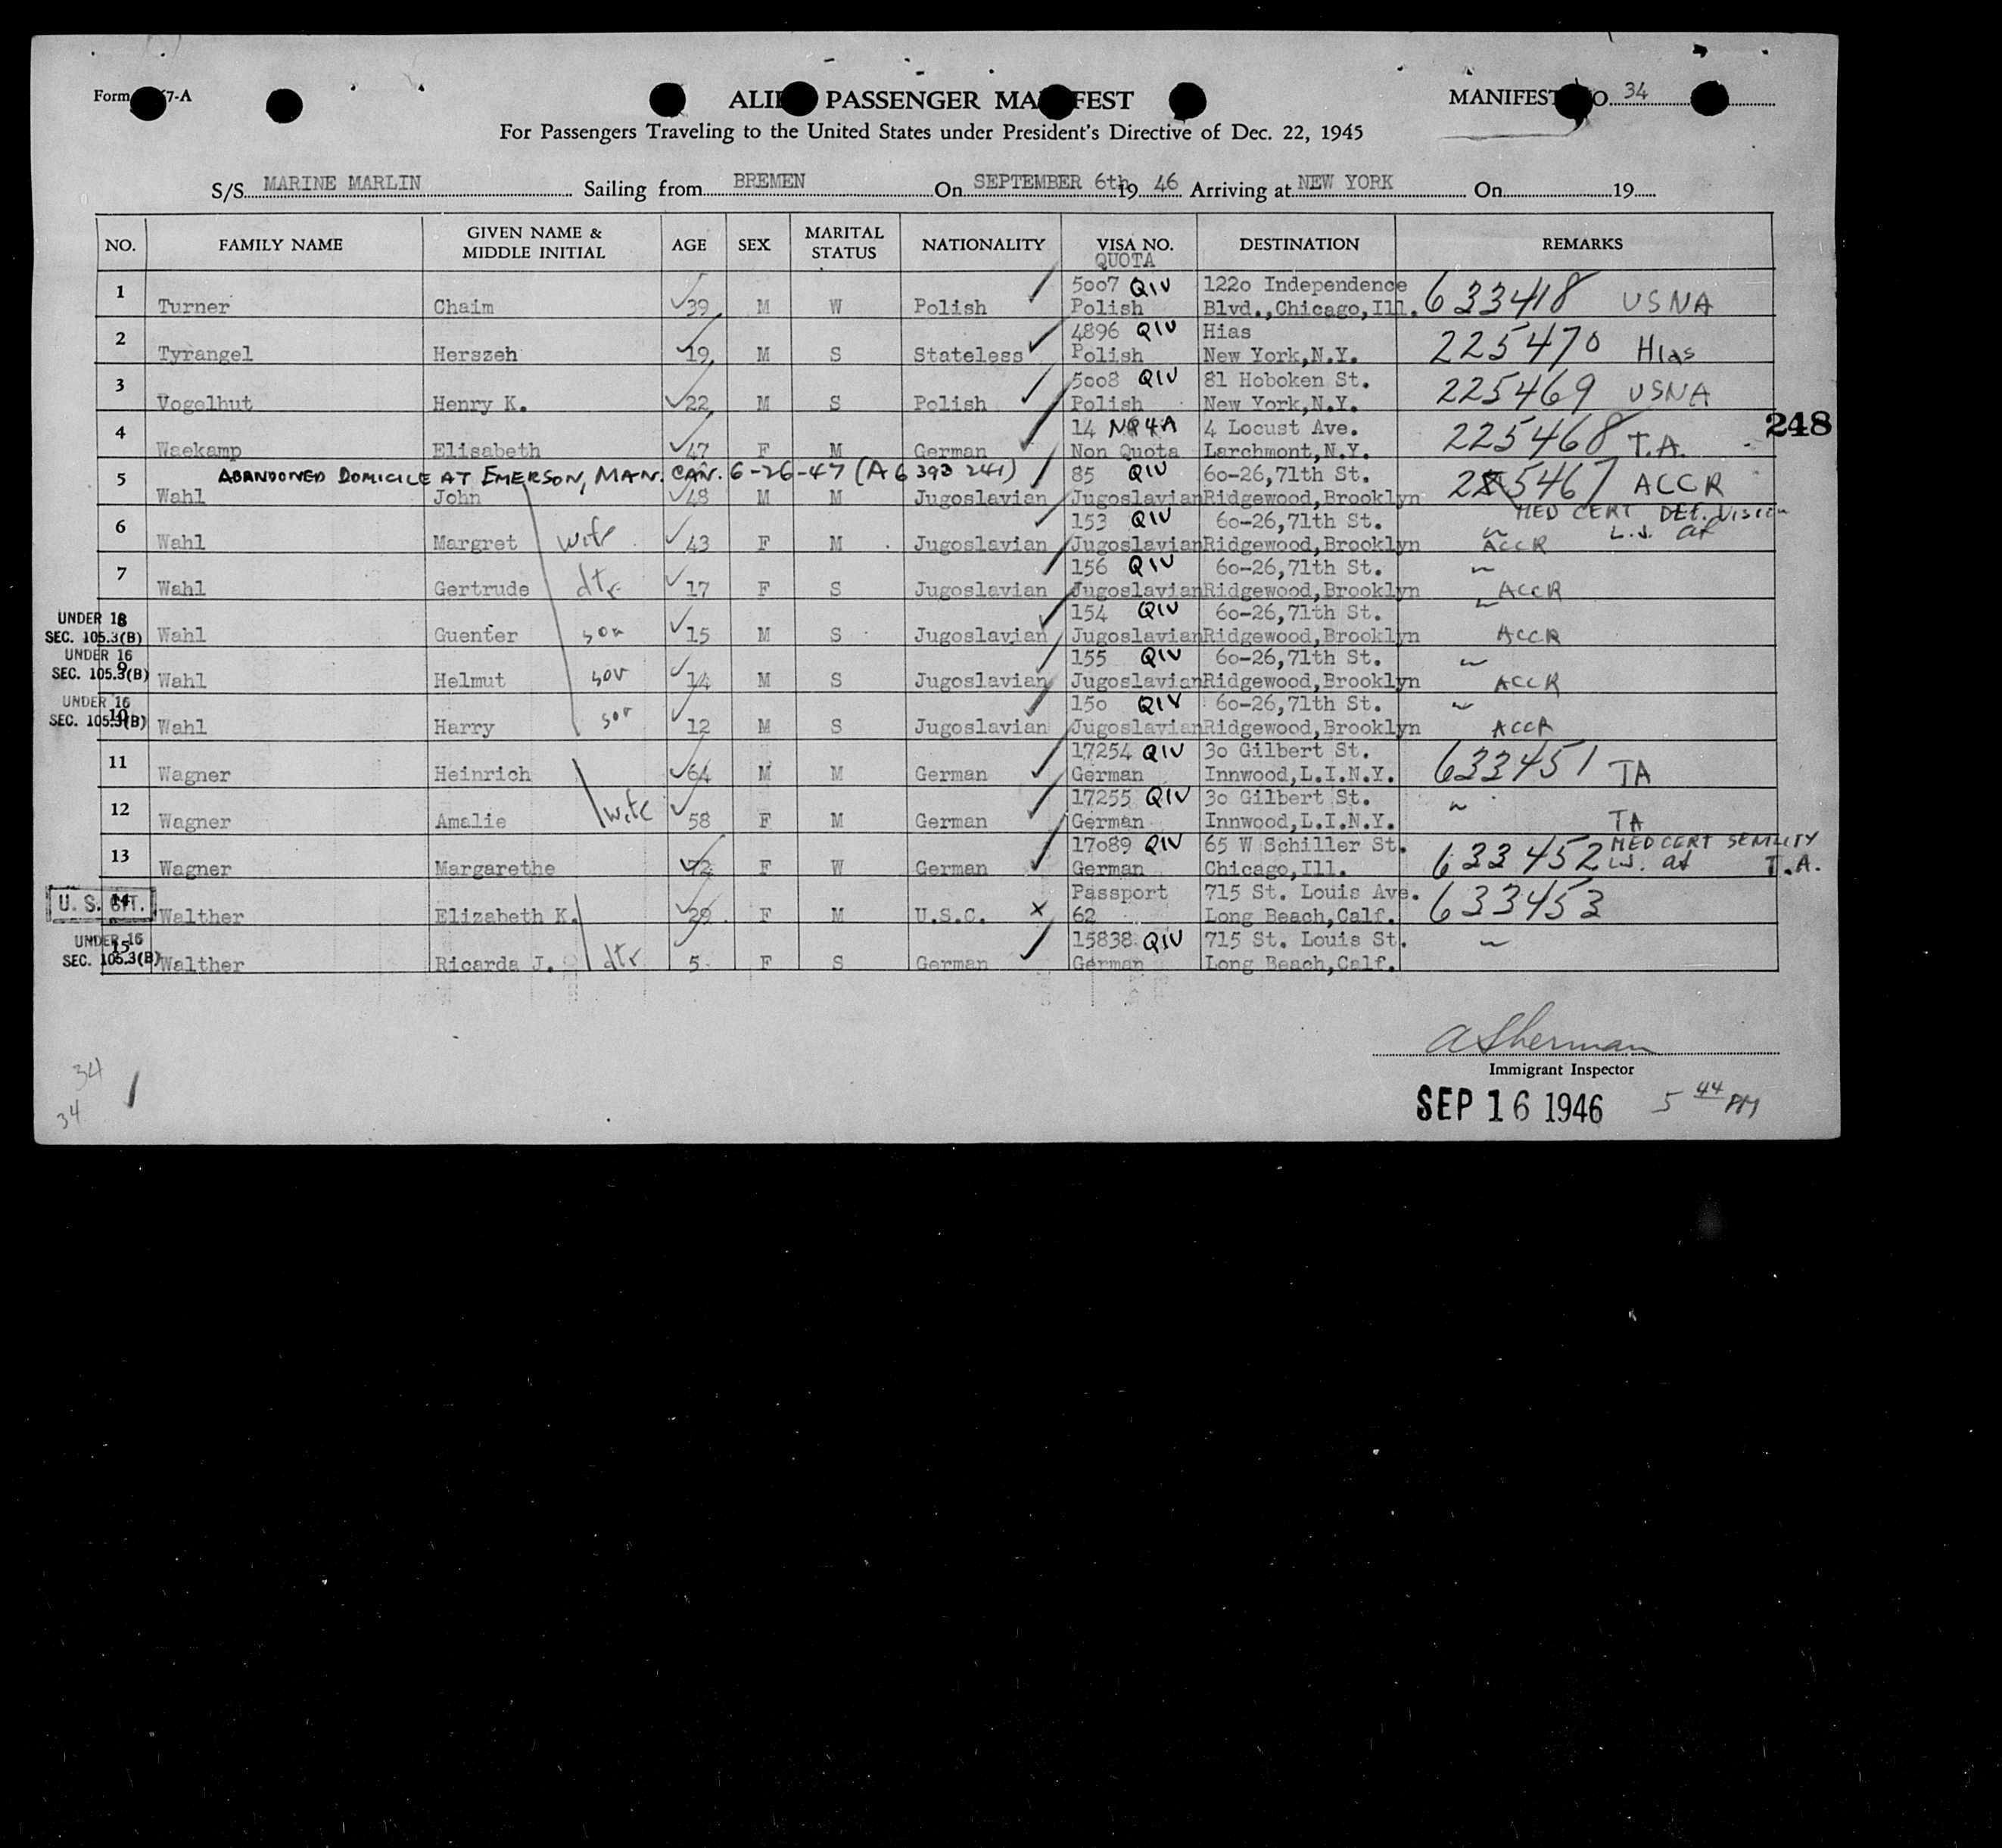 Form 7-A
ALIE PASSENGER MA FEST
MANIFEST O 34
For Passengers Traveling to the United States under President's Directive of Dec. 22, 1945
S/S MARINE MARLIN Sailing from BREMEN On SEPTEMBER 6th 19 46 Arriving at NEW YORK On 19
NO. FAMILY NAME GIVEN NAME & MIDDLE INITIAL AGE SEX MARITAL STATUS NATIONALITY VISA NO. QUOTA DESTINATION REMARKS
1 5007 QIV 122o Independence
Turner Chaim 39 M W Polish Polish Blvd.,Chicago,Ill. 633418 USNA
2 4896 QIV Hias
Tyrangel Herszeh 19 M S Stateless Polish New York,N.Y. 225470 Hias
3 5008 QIV 81 Hoboken St.
Vogelhut Henry K. 22 M S Polish Polish New York,N.Y. 225469 USNA
4 14 NQ4A 4 Locust Ave. 248
Waekamp Elisabeth 47 F M German Non Quota Larchmont,N.Y. 225468 T.A.
5 ABANDONED DOMICILE AT EMERSON, MAN. CAN. 6-26-47 (A6 393 241) 85 QIV 6o-26,71th St.
Wahl John 48 M M Jugoslavian Jugoslavian Ridgewood,Brooklyn 225467 ACCR
MED CERT DEF. Vision
6 153 QIV 6o-26,71th St. L.J. at
Wahl Margret wife 43 F M Jugoslavian Jugoslavian Ridgewood,Brooklyn ACCR
7 156 QIV 6o-26,71th St.
Wahl Gertrude dtr 17 F S Jugoslavian Jugoslavian Ridgewood,Brooklyn ACCR
UNDER 16 8 154 QIV 6o-26,71th St.
SEC. 105.3(B) Wahl Guenter son 15 M S Jugoslavian Jugoslavian Ridgewood,Brooklyn ACCR
UNDER 16 9 155 QIV 6o-26,71th St.
SEC. 105.3(B) Wahl Helmut son 14 M S Jugoslavian Jugoslavian Ridgewood,Brooklyn ACCR
UNDER 16 10 15o QIV 6o-26,71th St.
SEC. 105.3(B) Wahl Harry son 12 M S Jugoslavian Jugoslavian Ridgewood,Brooklyn ACCR
11 17254 QIV 3o Gilbert St.
Wagner Heinrich 64 M M German German Innwood,L.I.N.Y. 633451 TA
12 17255 QIV 3o Gilbert St.
Wagner Amalie wife 58 F M German German Innwood,L.I.N.Y. TA
13 17o89 QIV 65 W Schiller St. MED CERT SENILITY
Wagner Margarethe 72 F W German German Chicago,Ill. 633452 L.J. at T.A.
U. S. CIT. 14 Passport 715 St. Louis Ave.
Walther Elizabeth K. 29 F M U.S.C. X 62 Long Beach,Calf. 633453
UNDER 16 15 15838 QIV 715 St. Louis St.
SEC. 105.3(B) Walther Ricarda J. dtr 5 F S German German Long Beach,Calf.
A Sherman
Immigrant Inspector
SEP 16 1946 5 44 PM
34
34